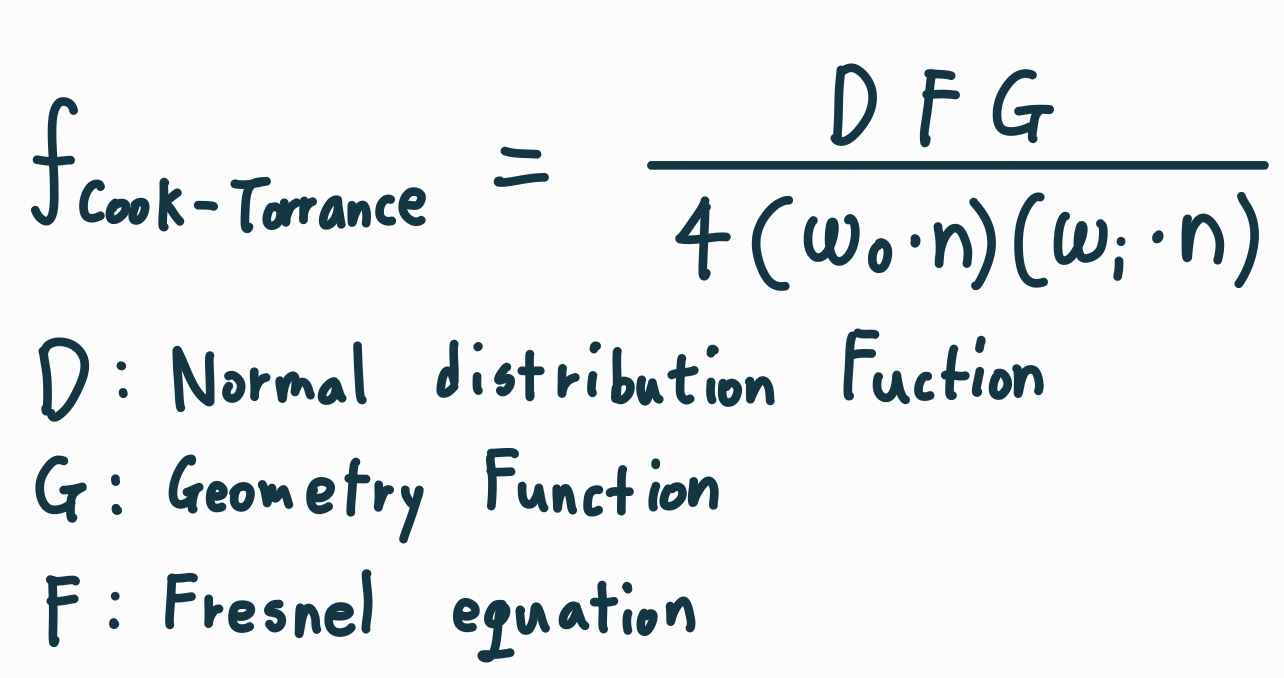 f_Cook-Torrance = D F G / 4(ω_o·n)(ω_i·n)
D: Normal distribution Fuction
G: Geometry Function
F: Fresnel equation